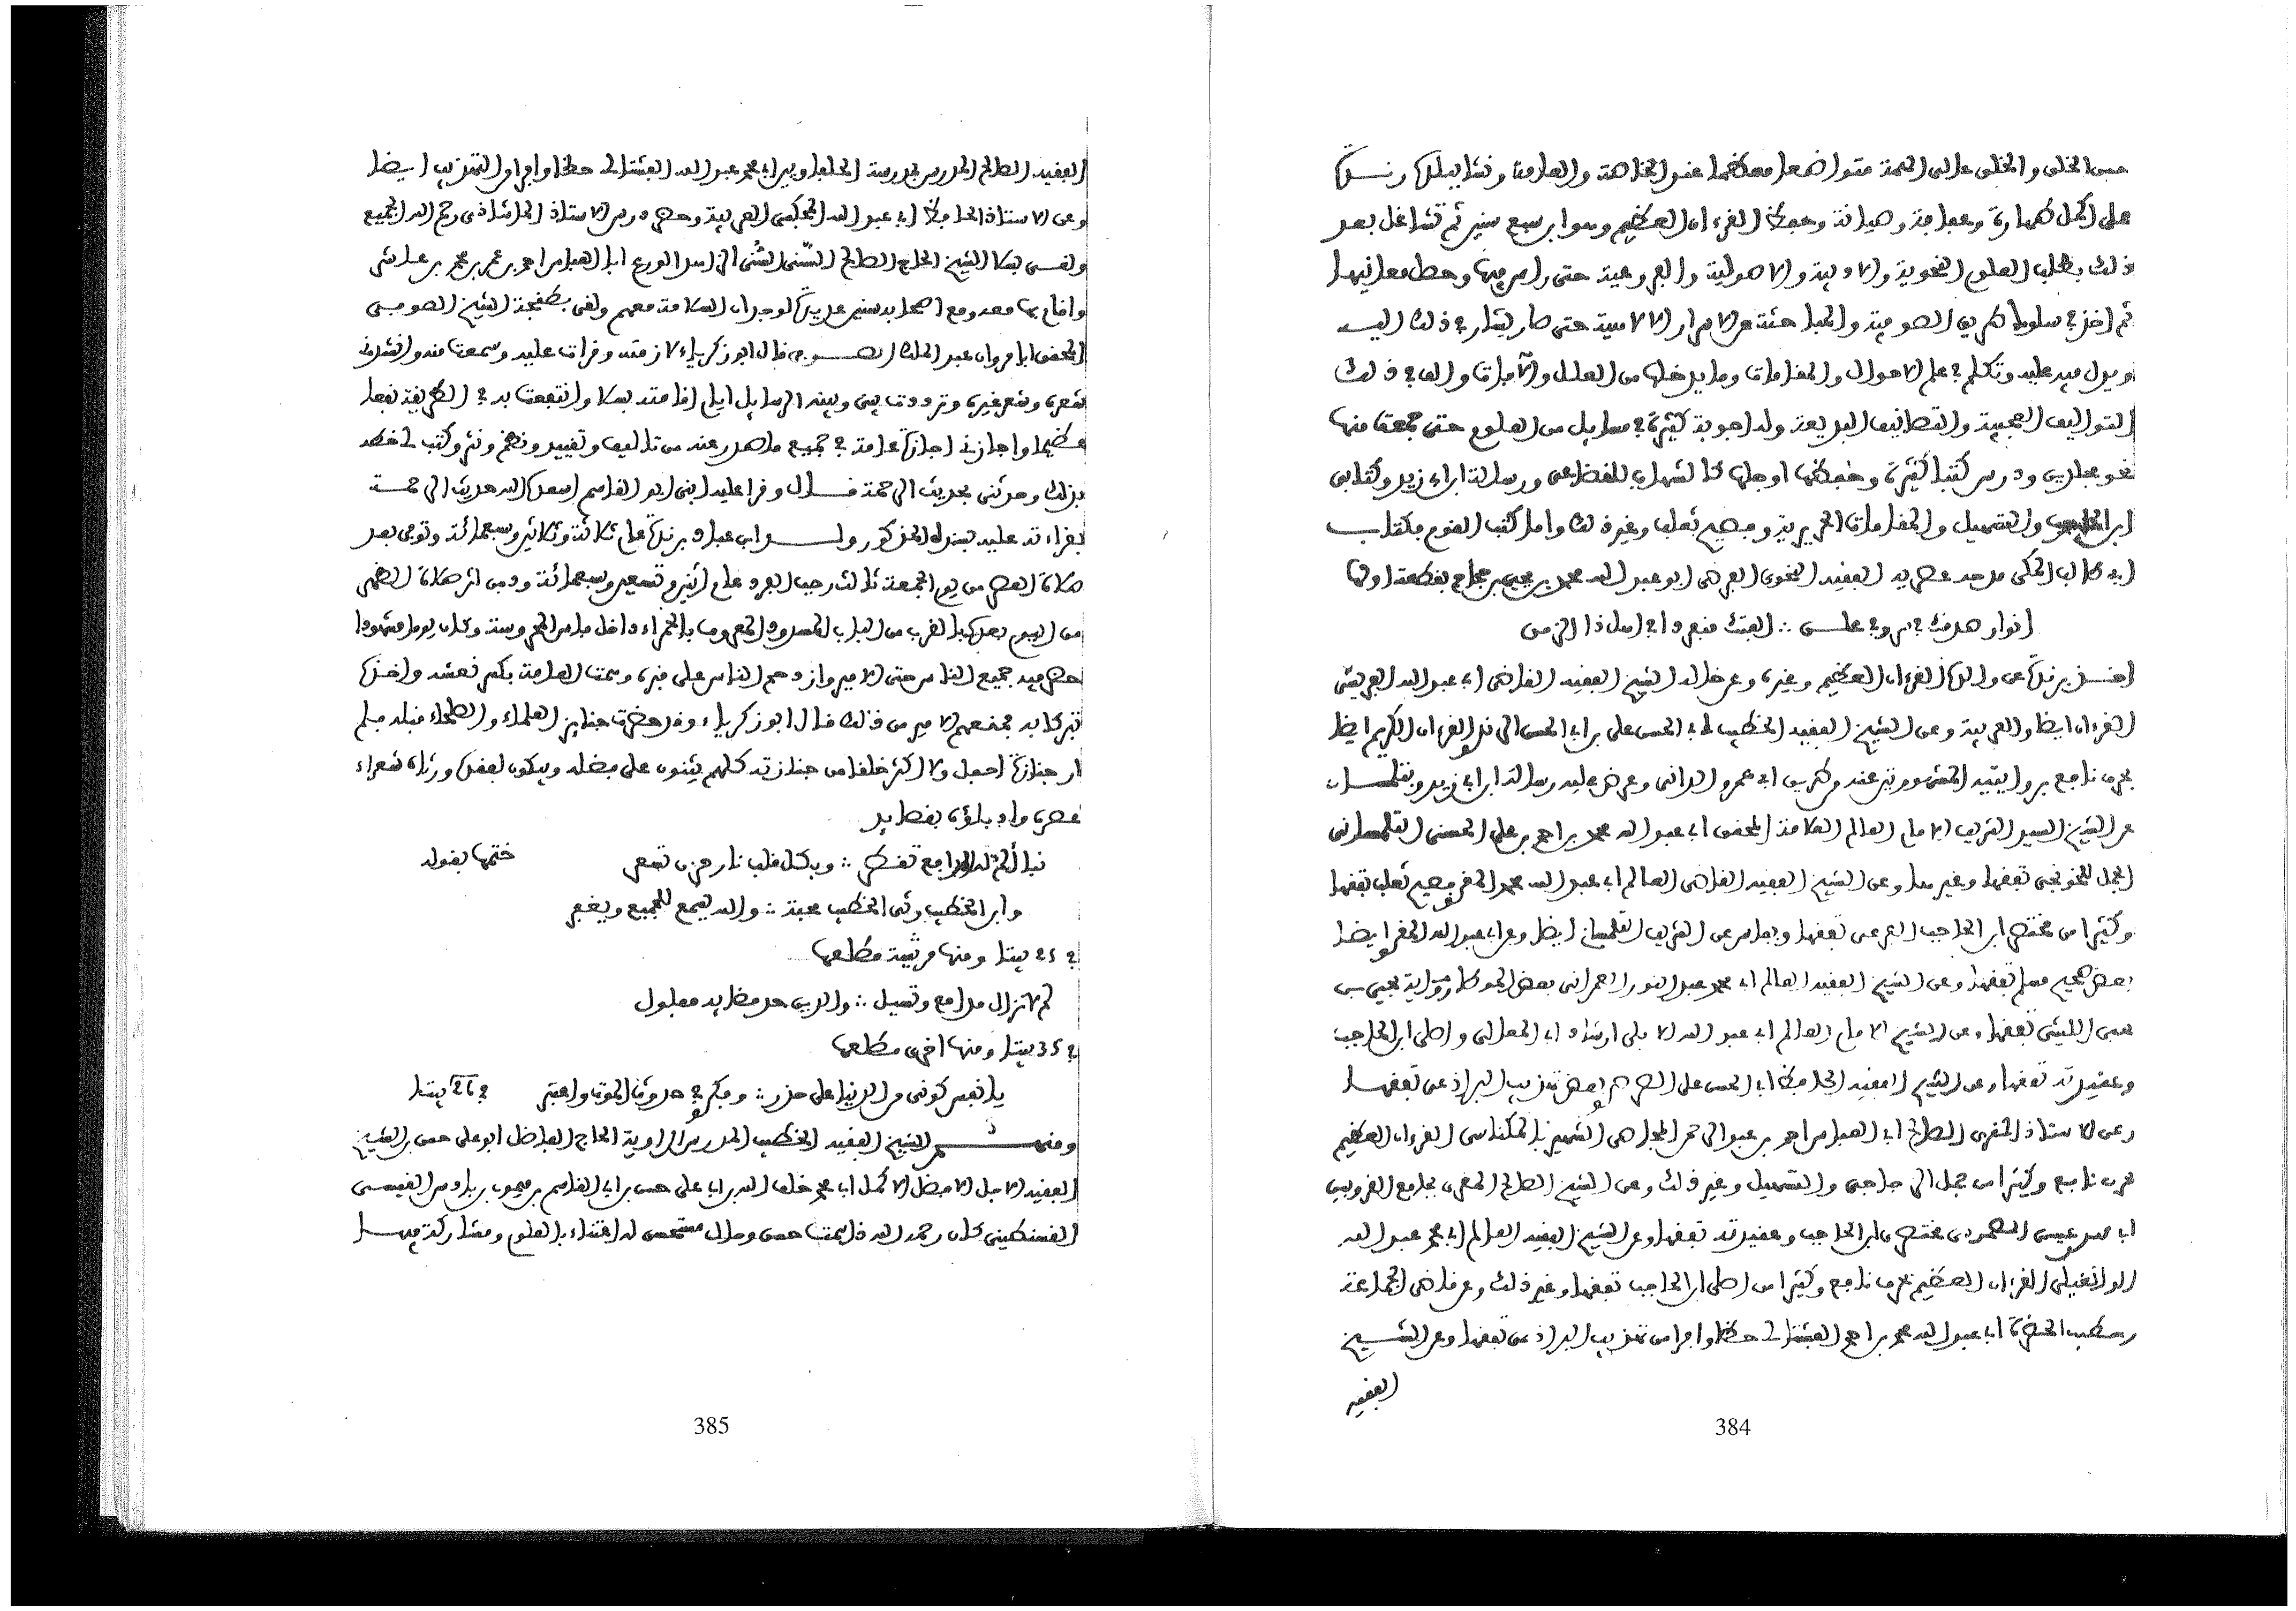 حسن الخلق والخلق عالى الهمة متواضعا معظما عند الخاصة والعامة ونشأ ببلده رندة
على اكمل طهارة وعفاف وصيانة وحفظ القرءان العظيم وهو ابن سبع سنين ثم تشاغل بعد
ذلك بطلب العلوم النحوية والادبية والاصولية والفروعية حتى رأس فيها وحصل معانيها
ثم اخذ في سلوك طريق الصوفية والمباحثة عن الاسرار الالاهية حتى صار يشار في ذلك اليه
ويعول فيه عليه وتكلم في علم الاحوال والمقامات وما يدخلها من العلل والآفات والف في ذلك
التواليف العجيبة والتصانيف البديعة وله اجوبة كثيرة في مسايل من العلوم حتى جمعت منها
نحو مجلدين ودرس كتبا كثيرة وحفظها او جلها كالشهاب للقضاعي ورسالة ابن ابي زيد وكتابي
ابن الحاجب والتسهيل والمقامات الحريرية وفصيح ثعلب وغير ذلك واما كتب القوم فكتاب
ابي طالب المكي مدحه عصريه الفقيه النحوي الفرضي ابو عبد الله محمد بن يحيى بن حجاج بقطعة اولها
انوار هديك في سر وفي علن :. الفتك منفردا في اهل ذا الزمن
اخذ برندة عن والده القرءان العظيم وغيره وعن خاله الشيخ الفقيه القاضي ابي عبد الله الفريشي
القرءان ايضا والعربية وعن الشيخ الفقيه الخطيب ابي الحسن علي بن ابي الحسن الرندي القرءان الكريم ايضا
بحرف نافع بروايتيه المشهورتين عنه وطريق ابي عمرو الداني وعرض عليه رسالة ابن ابي زيد وبتلمسان
عن الشيخ السيد الشريف الامام العالم العلامة المحقق ابي عبد الله محمد بن احمد بن علي الحسني التلمساني
الجمل للخونجي تفقها وغيرها وعن الشيخ الفقيه القاضي العالم ابي عبد الله محمد المقري فصيح ثعلب تفقها
وكثيرا من مختصر ابن الحاجب الفرعي تفقها وبفاس عن الشريف التلمساني ايضا وعن ابي عبد الله المقري ايضا
بعض صحيح مسلم تفقها وعن الشيخ الفقيه العالم ابي محمد عبد النور العمراني بعض الموطا رواية يحيى بن
يحيى الليثي تفقها وعن الشيخ الامام العالم ابي عبد الله الابلي ارشاد ابي المعالي واصلي ابن الحاجب
وعقيدته تفقها وعن الشيخ الفقيه الحافظ ابي الحسن علي الصرصري بعض تهذيب البراذعي تفقها
وعن الاستاذ المقري الصالح ابي العباس احمد بن عبد الرحمن المجاصي الشهير بالمكناسي القرءان العظيم
بحرف نافع وكثيرا من جمل الزجاجي والتسهيل وغير ذلك وعن الشيخ الصالح المقري بجامع القرويين
ابي مهدي عيسى المصمودي مختصري ابن الحاجب وعقيدته تفقها وعن الشيخ الفقيه العالم ابي محمد عبد الله
الوانغيلي القرءان العظيم بحرف نافع وكثيرا من اصلي ابن الحاجب تفقها وغير ذلك وعن قاضي الجماعة
وخطيب الحضرة ابي عبد الله محمد بن احمد الفشتالي حظا وافرا من تهذيب البراذعي تفقها وعن الشيخ
الفقيه
384
الفقيه الصالح المدرس بمدرسة الحلفاويين ابي محمد عبد الله الفشتالي حظا وافرا من التهذيب ايضا
وعن الاستاذ الحافظ ابي عبد الله المجكسي العربية وحضر درس الاستاذ الحافظ اذ رحم الله الجميع
ولقي بسلا الشيخ الحاج الصالح السني السُّني الزاهد الورع ابا العباس احمد بن عمر بن محمد بن عاشر
واقام بها معه ومع اصحابه سنين عديدة لوجدان السلامة معهم ولقي بطنجة الشيخ الصوفي
المحقق ابا مروان عبد الملك قال ابو زكرياء لازمته وقرات عليه وسمعت منه وانشدني
شعره وشعر غيره وترددت بيني وبينه الرسايل ايام اقامته بسلا وانتفعت به في الطريقة نفعا
عظيما واجازني اجازة عامة في جميع ما صدر عنه من تاليف وتقييد ونظم ونثر وكتب لي خطه
بذلك وحدثني بحديث الرحمة قال وقرا عليه ابني ابو القاسم اسعده الله حديث الرحمة
بقراءته عليه بسنده المذكور ولد ابن عباد برندة عام ثلاثة وثلاثين وسبعمائة وتوفي بعد
صلاة العصر من يوم الجمعة ثالث رجب الفرد عام اثنين وتسعين وسبعمائة ودفن اثر صلاة الظهر
من اليوم بعده بالقرب من الباب المسدود المعروف بالحمراء داخل فاس المحروسة وكان يوما مشهودا
حضر فيه جميع الناس حتى الامير وازدحم الناس على قبره وهمت العامة بكسر نعشه واخذه
تبركا به فمنعهم الامير من ذلك قال ابو زكرياء وقد حضرت جنايز العلماء والصلحاء قبله فلم
ار جنازة احفل ولا اكثر خلقا من جنازته كلهم يثنون على فضله ويبكون لفقده ورثاه شعراء
عصره وادباؤه بقصايد
نبأ ألم له المدامع تقطر :. وبكل قلب نار حزن تسعر ختمها بقوله
وابن الخطيب رثى الخطيب محبة :. والله يسمع للجميع ويغفر
في 25 بيتا ومنها مرثية مطلعها
لم لا تزال مدامع وتسيل :. والدين حد مضايه مفلول
في 35 بيتا ومنها اخرى مطلعها
يا نفس كوني من الدنيا على حذر :. وفكري في حدوث الموت واعتبري في 26 بيتا
ومنهم الشيخ الفقيه الخطيب المدرس الراوية الحاج الفاضل ابو علي حسن بن الشيخ
الفقيه الاجل الافضل الاكمل ابي محمد خلف الله بن ابي علي حسن بن ابي القاسم بن ميمون بن باديس القيسي
القسنطيني كان رحمه الله ذا سمت حسن وحال مستحسن له اعتناء بالعلوم ومشاركة فيها
385